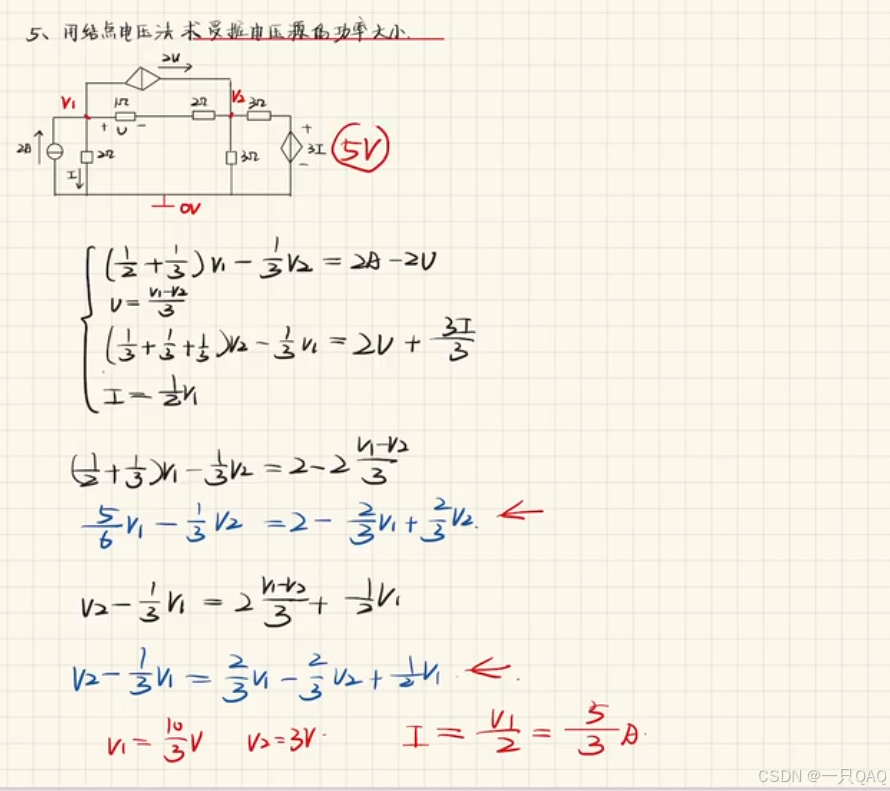 5、用结点电压法求受控电压源的功率大小.
2U
V1 1Ω 2Ω V2 3Ω
+ U -
2A 2Ω 3Ω + 3I - 5V
I
0V
(1/2 + 1/3) V1 - 1/3 V2 = 2A - 2U
U = (V1-V2)/3
(1/3 + 1/3 + 1/3) V2 - 1/3 V1 = 2U + 3I/3
I = 1/2 V1
(1/2 + 1/3) V1 - 1/3 V2 = 2 - 2 (V1-V2)/3
5/6 V1 - 1/3 V2 = 2 - 2/3 V1 + 2/3 V2.
V2 - 1/3 V1 = 2 (V1-V2)/3 + 1/2 V1
V2 - 1/3 V1 = 2/3 V1 - 2/3 V2 + 1/2 V1.
V1 = 10/3 V V2 = 3V. I = V1/2 = 5/3 A.
CSDN @一只QAQ